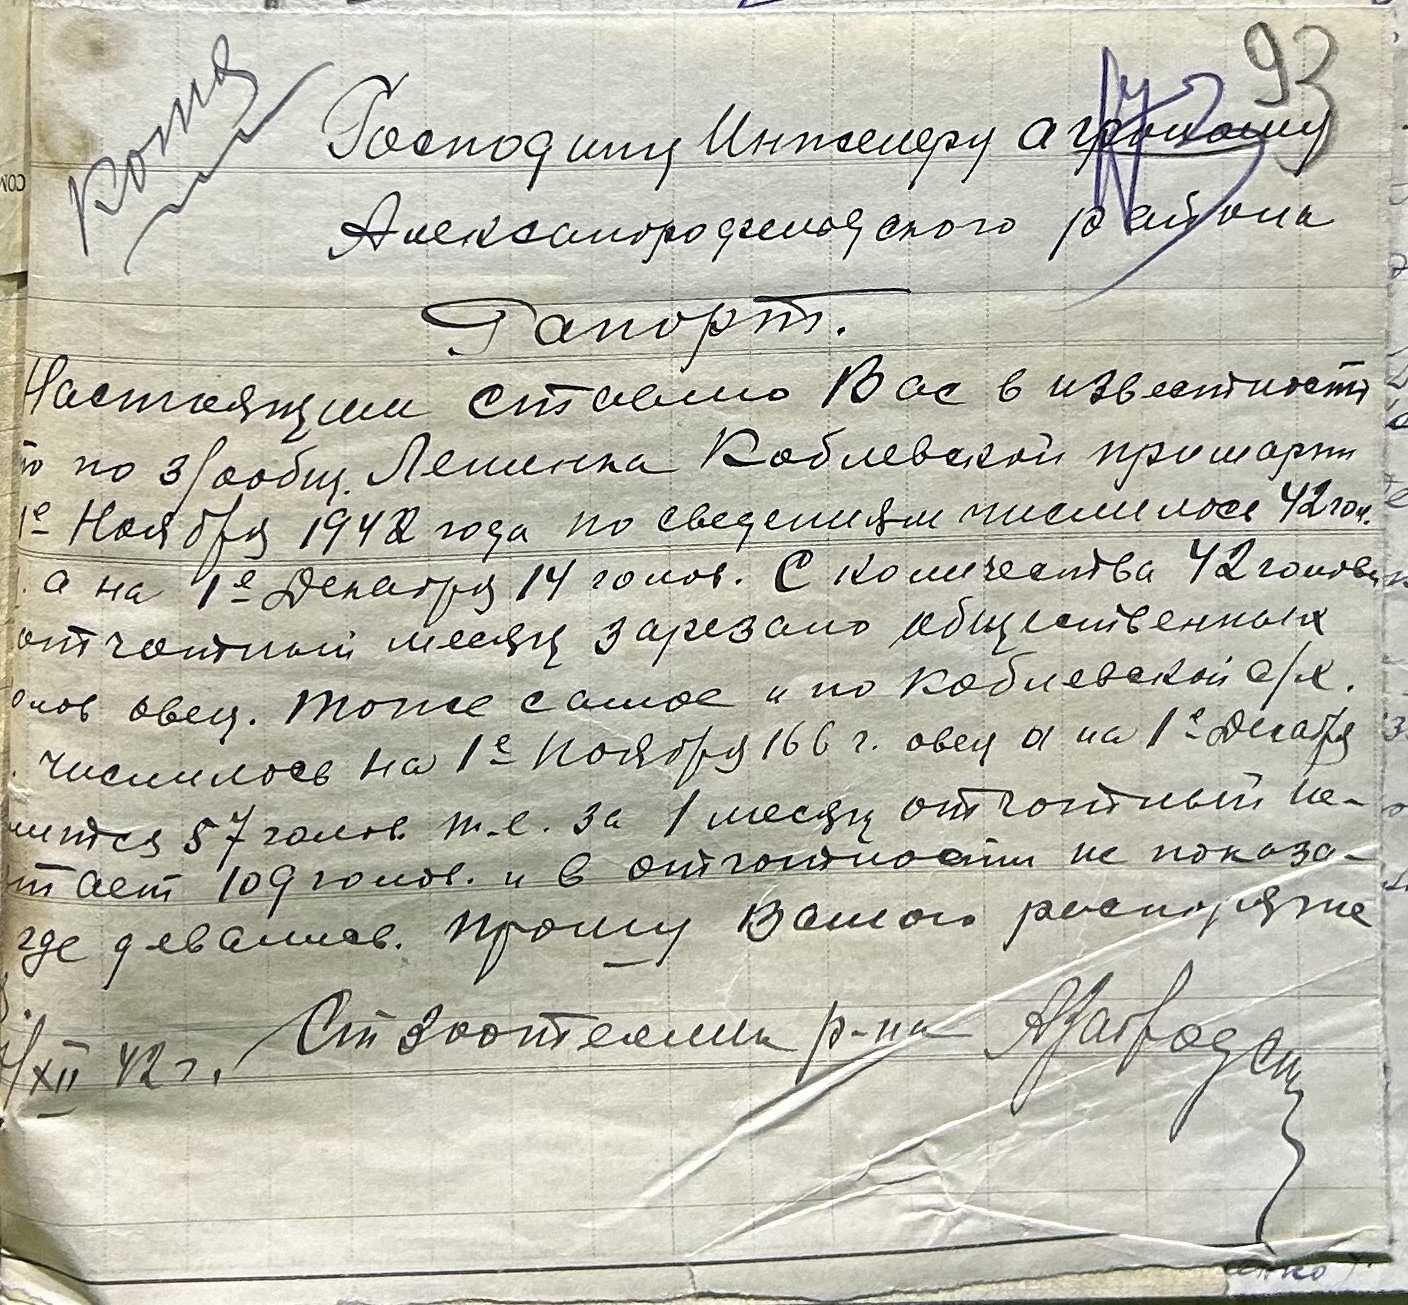 93
копия
Господину Инженеру агроному
Александрофельдского района
Рапорт.
Настоящим ставлю Вас в известность
по з/сообщ. Ленинка Коблевской примарии
1е Ноября 1942 года по сведениям числилося 42 гол.
а на 1е Декабря 14 голов. С количества 42 голов
отчотный месяц зарезано общественных
голов овец. Тоже самое и по Коблевской с/х.
числилось на 1е Ноября 166 г. овец а на 1е Декабря
57 голов. т.е. за 1 месяц отчотный не-
тает 109 голов. и в отчотности не показа-
где девались. Прошу Вашого распоряже
Ст Зоотехник р-на
XII 42 г.